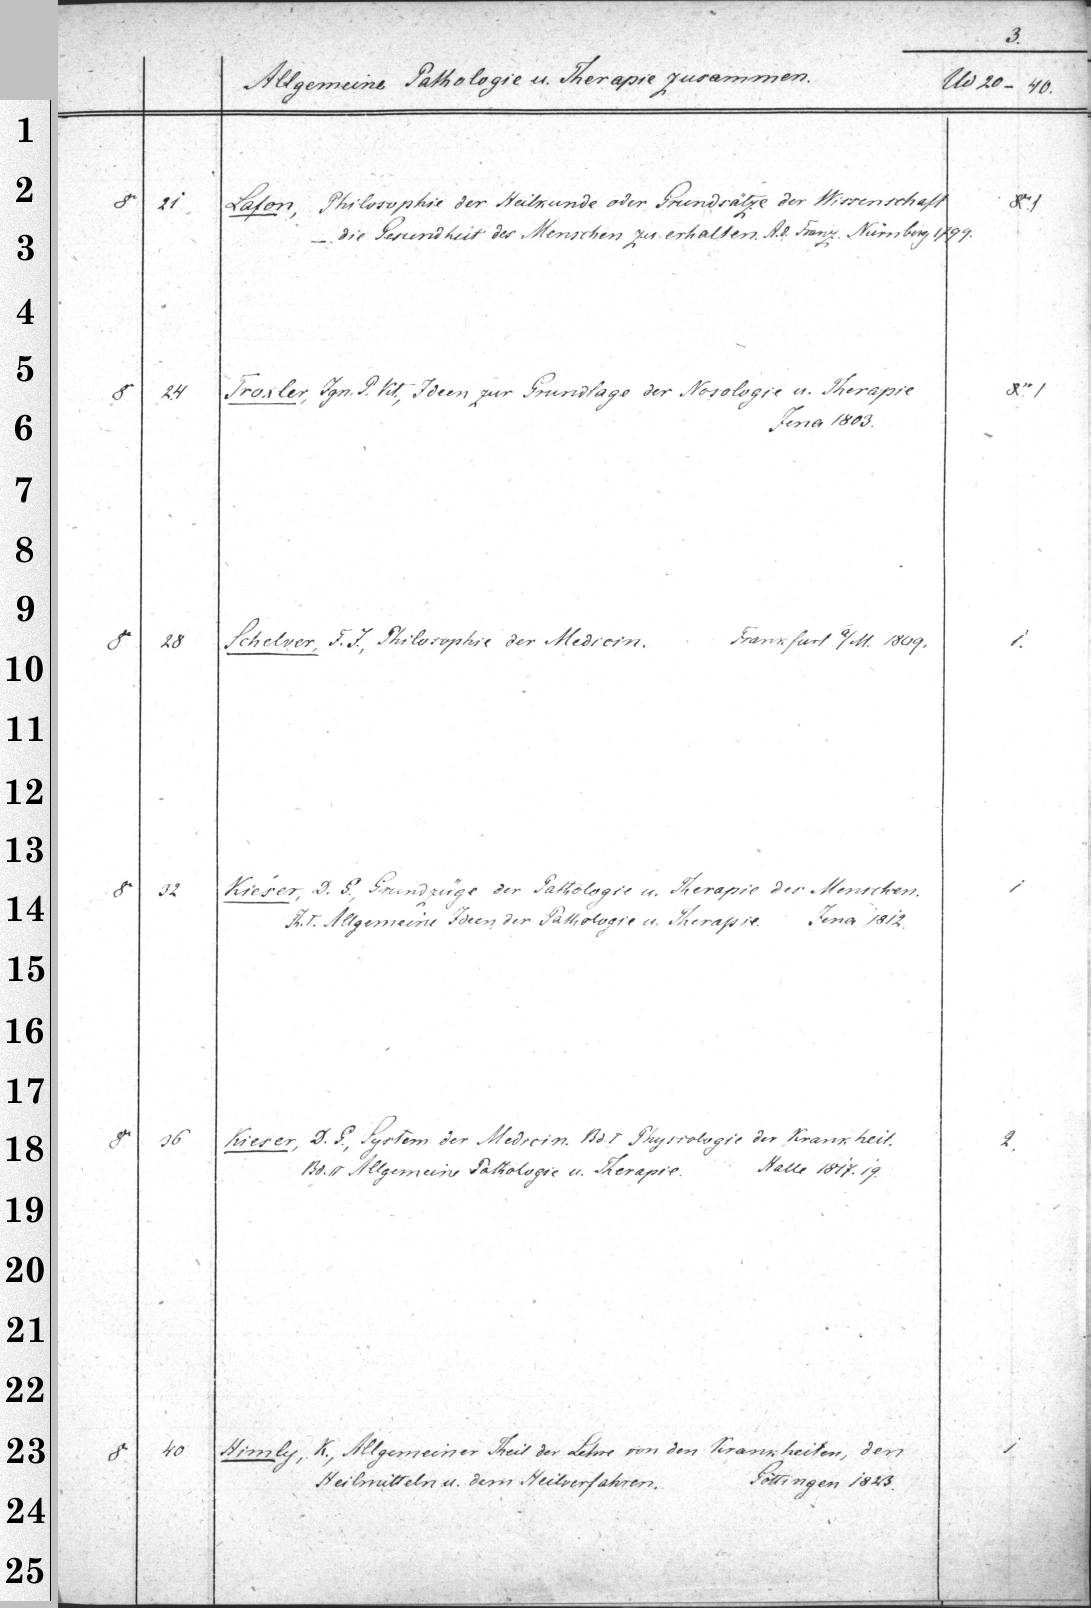 3.
Allgemeine Pathologie u. Therapie zusammen. Ud 20 - 40.
1
2
3
4
5
6
7
8
9
10
11
12
13
14
15
16
17
18
19
20
21
22
23
24
25
8° 21 Lafon, Philosophie der Heilkunde oder Grundsätze der Wissenschaft 1
— die Gesundheit des Menschen zu erhalten. A. d. Franz. Nürnberg 1799.
8° 24 Troxler, Ign. P. Vit., Ideen zur Grundlage der Nosologie u. Therapie 1
Jena 1803.
8° 28 Schelver, F. J., Philosophie der Medicin. Frankfurt a/M. 1809. 1.
8° 32 Kieser, D. G., Grundzüge der Pathologie u. Therapie des Menschen. 1
Th. I. Allgemeine Ideen der Pathologie u. Therapie. Jena 1812.
8° 36 Kieser, D. G., System der Medicin. Bd. I Physiologie der Krankheit. 2.
Bd. II Allgemeine Pathologie u. Therapie. Halle 1817. 19.
8° 40 Himly, K., Allgemeiner Theil der Lehre von den Krankheiten, den 1
Heilmitteln u. dem Heilverfahren. Göttingen 1823.